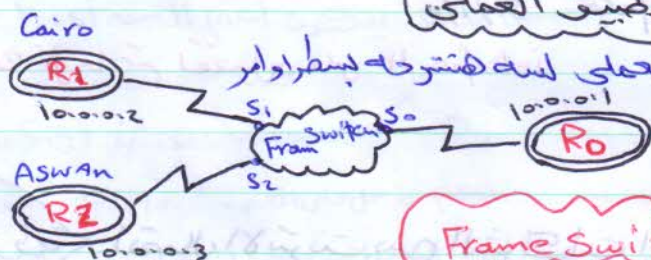 التطبيق العملى
عملى لسه هتشرحه بسطر اوامر
Cairo
R1
10.0.0.2
S1
Fram Switch
S0
10.0.0.1
R0
S2
ASWAN
R2
10.0.0.3
Frame Swi